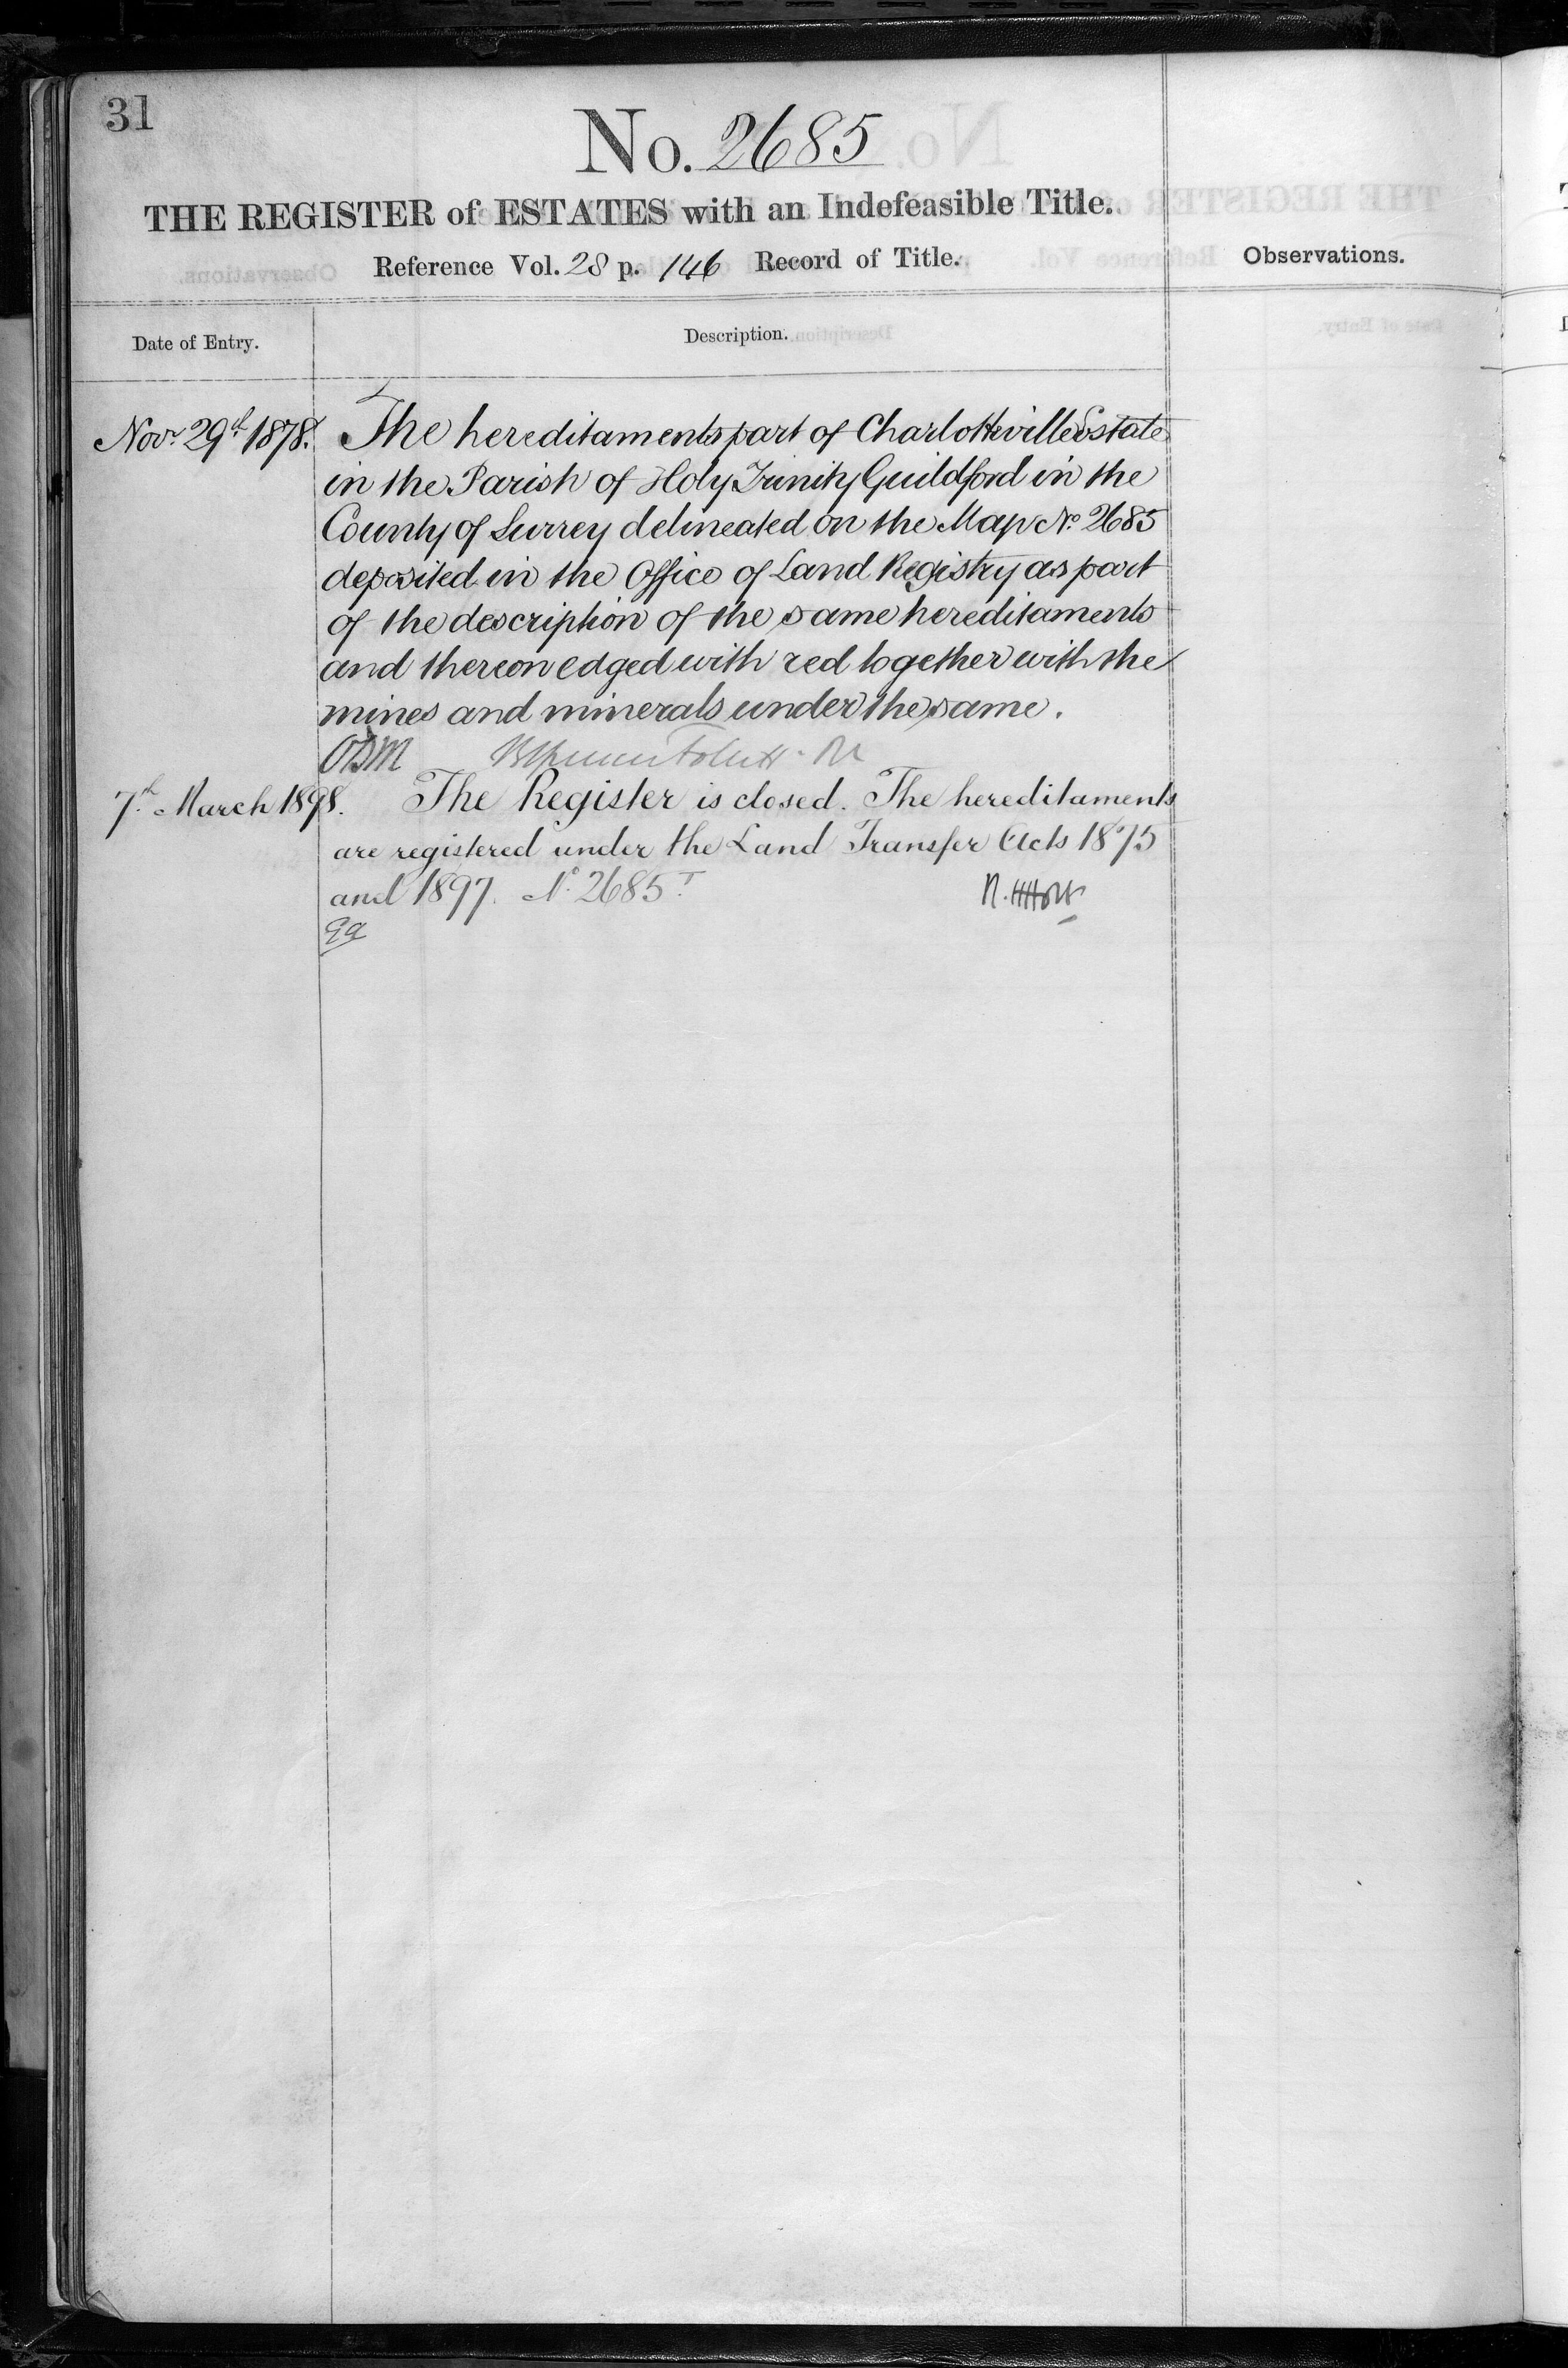 31
No. 2685
THE REGISTER of ESTATES with an Indefeasible Title.
Reference Vol. 28 p. 146 Record of Title.
Observations.
Date of Entry.
Description.
Novr 29th 1878. The hereditaments part of Charlotteville Estate
in the Parish of Holy Trinity Guildford in the
County of Surrey delineated on the Map No 2685
deposited in the Office of Land Registry as part
of the description of the same hereditaments
and thereon edged with red together with the
mines and minerals under the same.
7th March 1898. The Register is closed. The hereditaments
are registered under the Land Transfer Acts 1875
and 1897. No 2685T